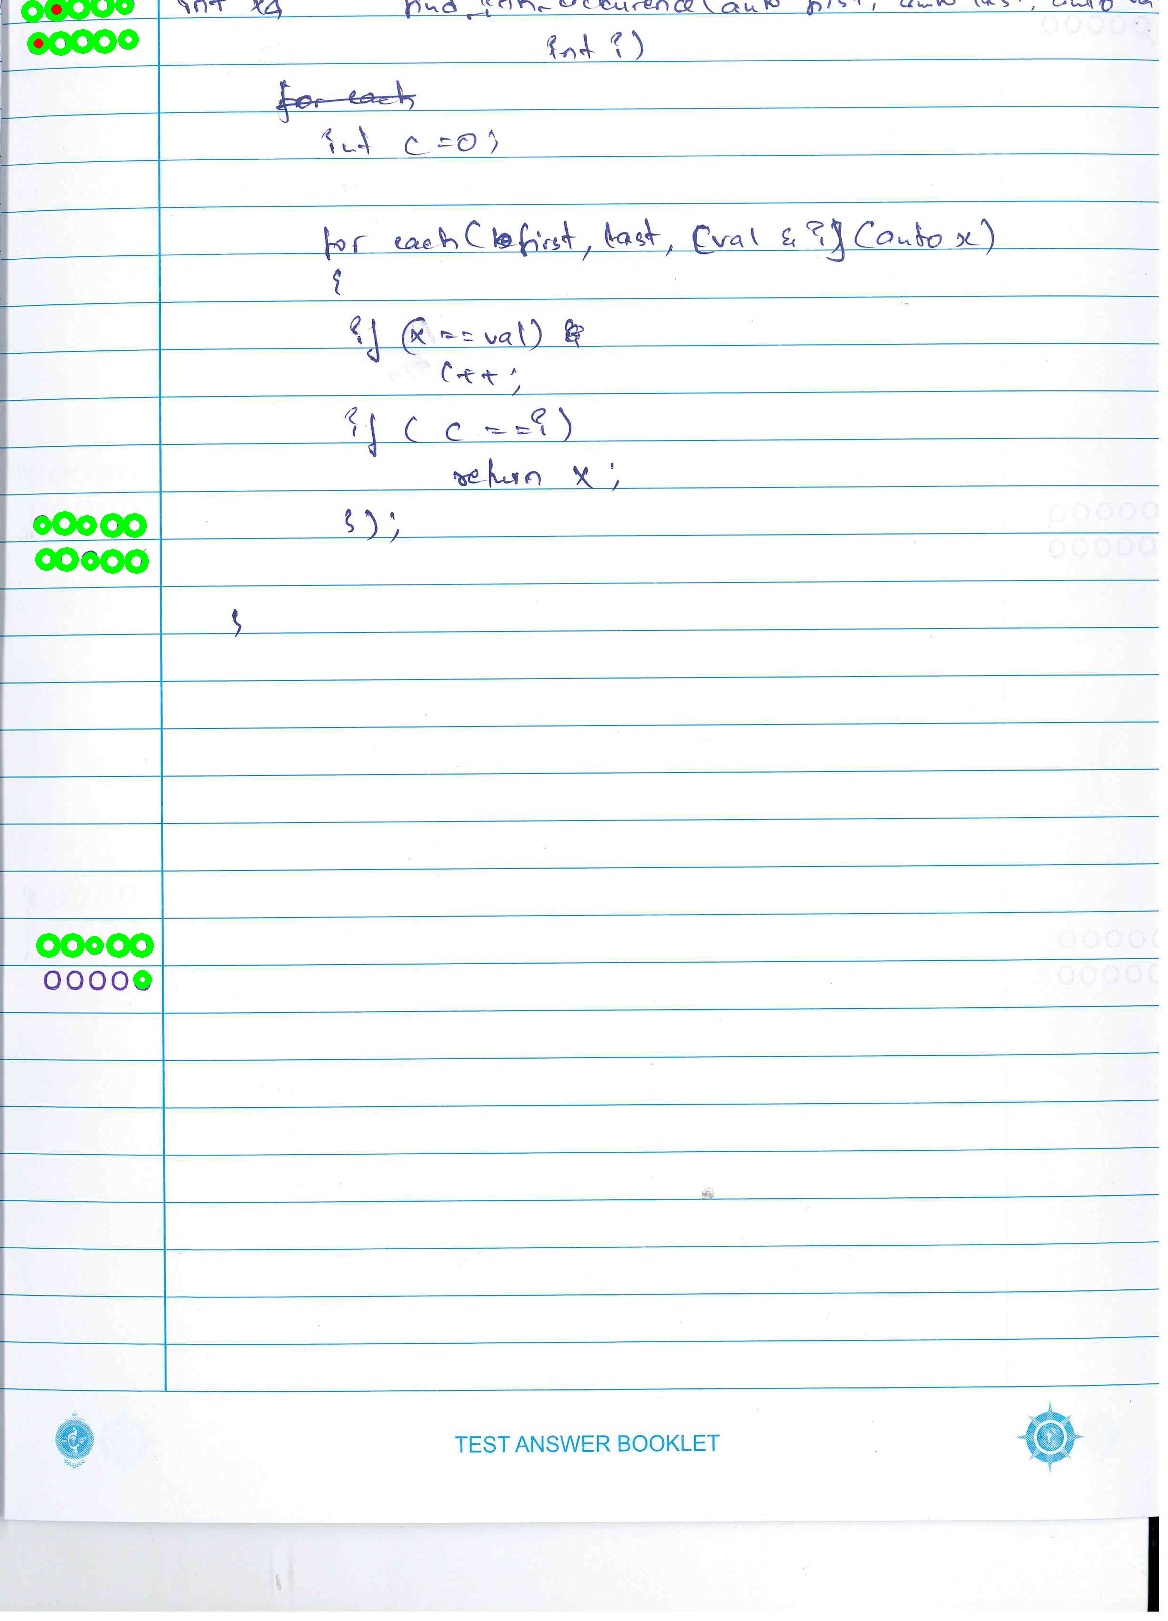 int find_ith_occurence(auto first, auto last, auto va
int i)
for each
int c=0;
for each(first, last, [val & i](auto x)
{
if (x == val)
c++;
if ( c == i)
return x;
});
}
TEST ANSWER BOOKLET